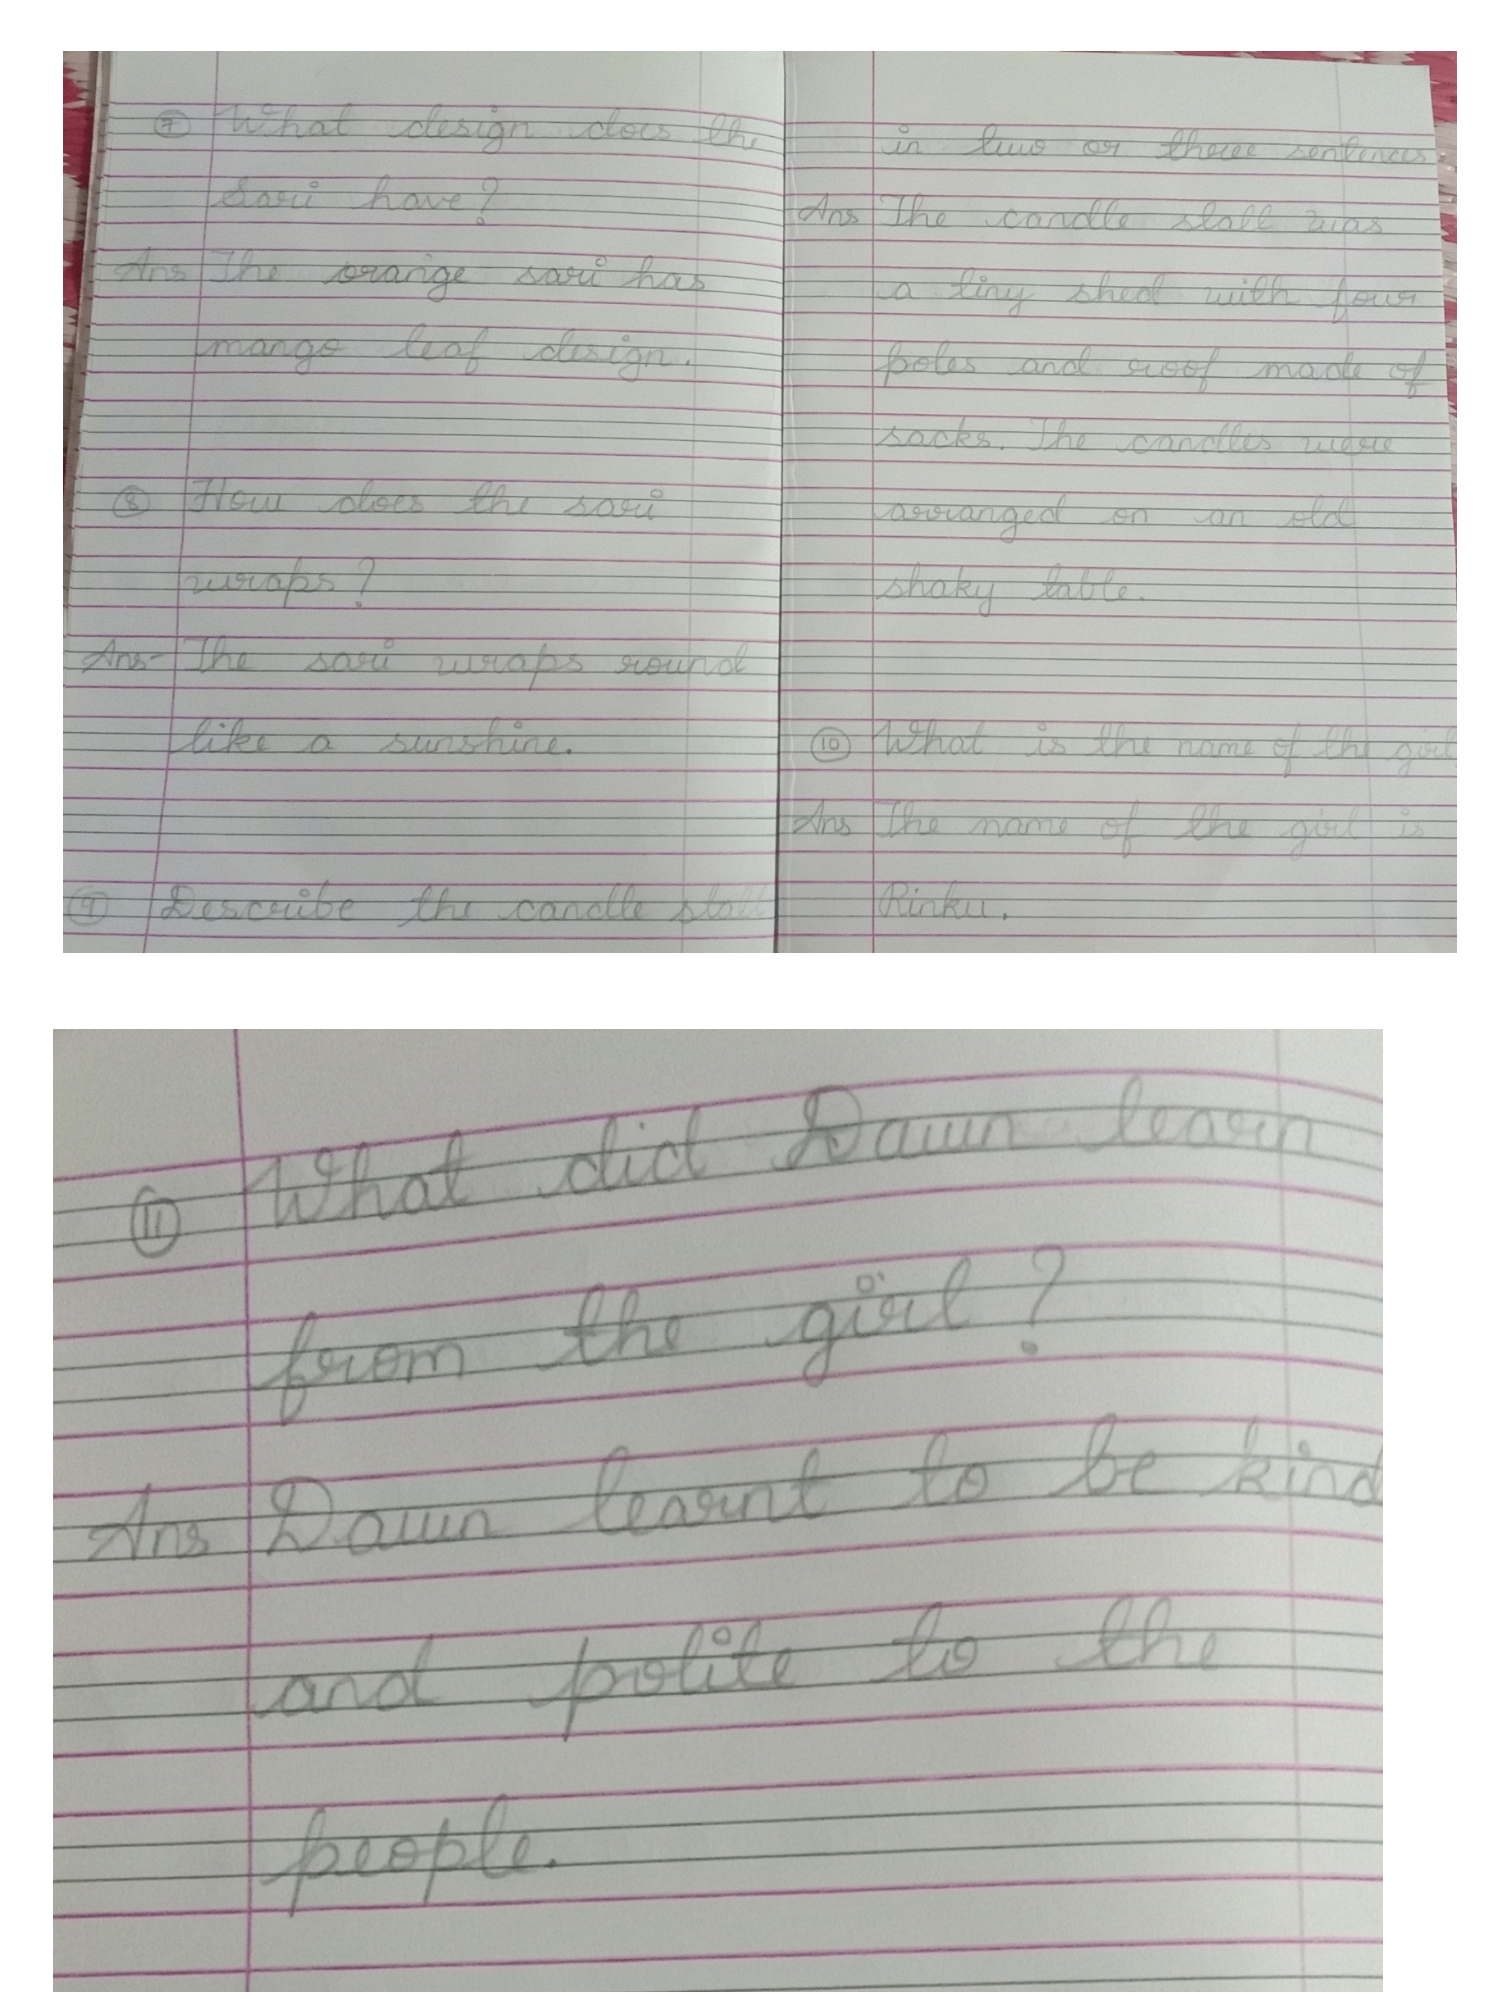 7 What design does the
sari have?
Ans The orange sari has
mango leaf design.
8 How does the sari
wraps?
Ans- The sari wraps round
like a sunshine.
9 Describe the candle stall
in two or three sentences.
Ans The candle stall was
a tiny shed with four
poles and roof made of
sacks. The candles were
arranged on an old
shaky table.
10 What is the name of the girl
Ans The name of the girl is
Rinku.
11 What did Dawn learn
from the girl?
Ans Dawn learnt to be kind
and polite to the
people.